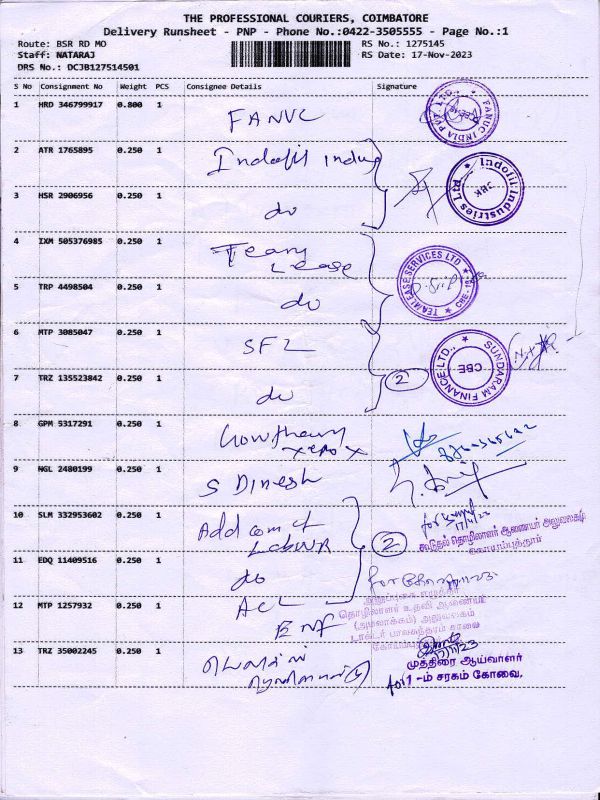 THE PROFESSIONAL COURIERS, COIMBATORE
Delivery Runsheet - PNP - Phone No.:0422-3505555 - Page No.:1
Route: BSR RD MO
Staff: NATARAJ
DRS No.: DCJB127514501
RS No.: 1275145
RS Date: 17-Nov-2023
S No Consignment No Weight PCS Consignee Details Signature
1 HRD 346799917 0.800 1 FANUC
FANUC INDIA PVT LTD.,
2 ATR 1765895 0.250 1 Indofil indus
Indofil Industries Ltd
CBK
3 HSR 2906956 0.250 1 do
4 IXM 505376985 0.250 1 Team
Lease
TEAMLEASE SERVICES LTD
CBE-18
5 TRP 4498504 0.250 1 do
6 MTP 3085047 0.250 1 SFL
SUNDARAM FINANCE LTD.,
CBE
7 TRZ 135523842 0.250 1 do 2
8 GPM 5317291 0.250 1 Gowtham
xerox
9 NGL 2480199 0.250 1 S Dinesh
10 SLM 332953602 0.250 1 Add com of
Labour
2
for
17/11/23
கூடுதல் தொழிலாளர் ஆணையர் அலுவலகம்
கோயம்புத்தூர்
11 EDQ 11409516 0.250 1 do
12 MTP 1257932 0.250 1 ACL
ENF
தொழிலாளர் உதவி ஆணையர்
(அமலாக்கம்) அலுவலகம்
டாக்டர் பாலசுந்தரம் சாலை
13 TRZ 35002245 0.250 1
17/11/23
முத்திரை ஆய்வாளர்
for 1-ம் சரகம் கோவை.